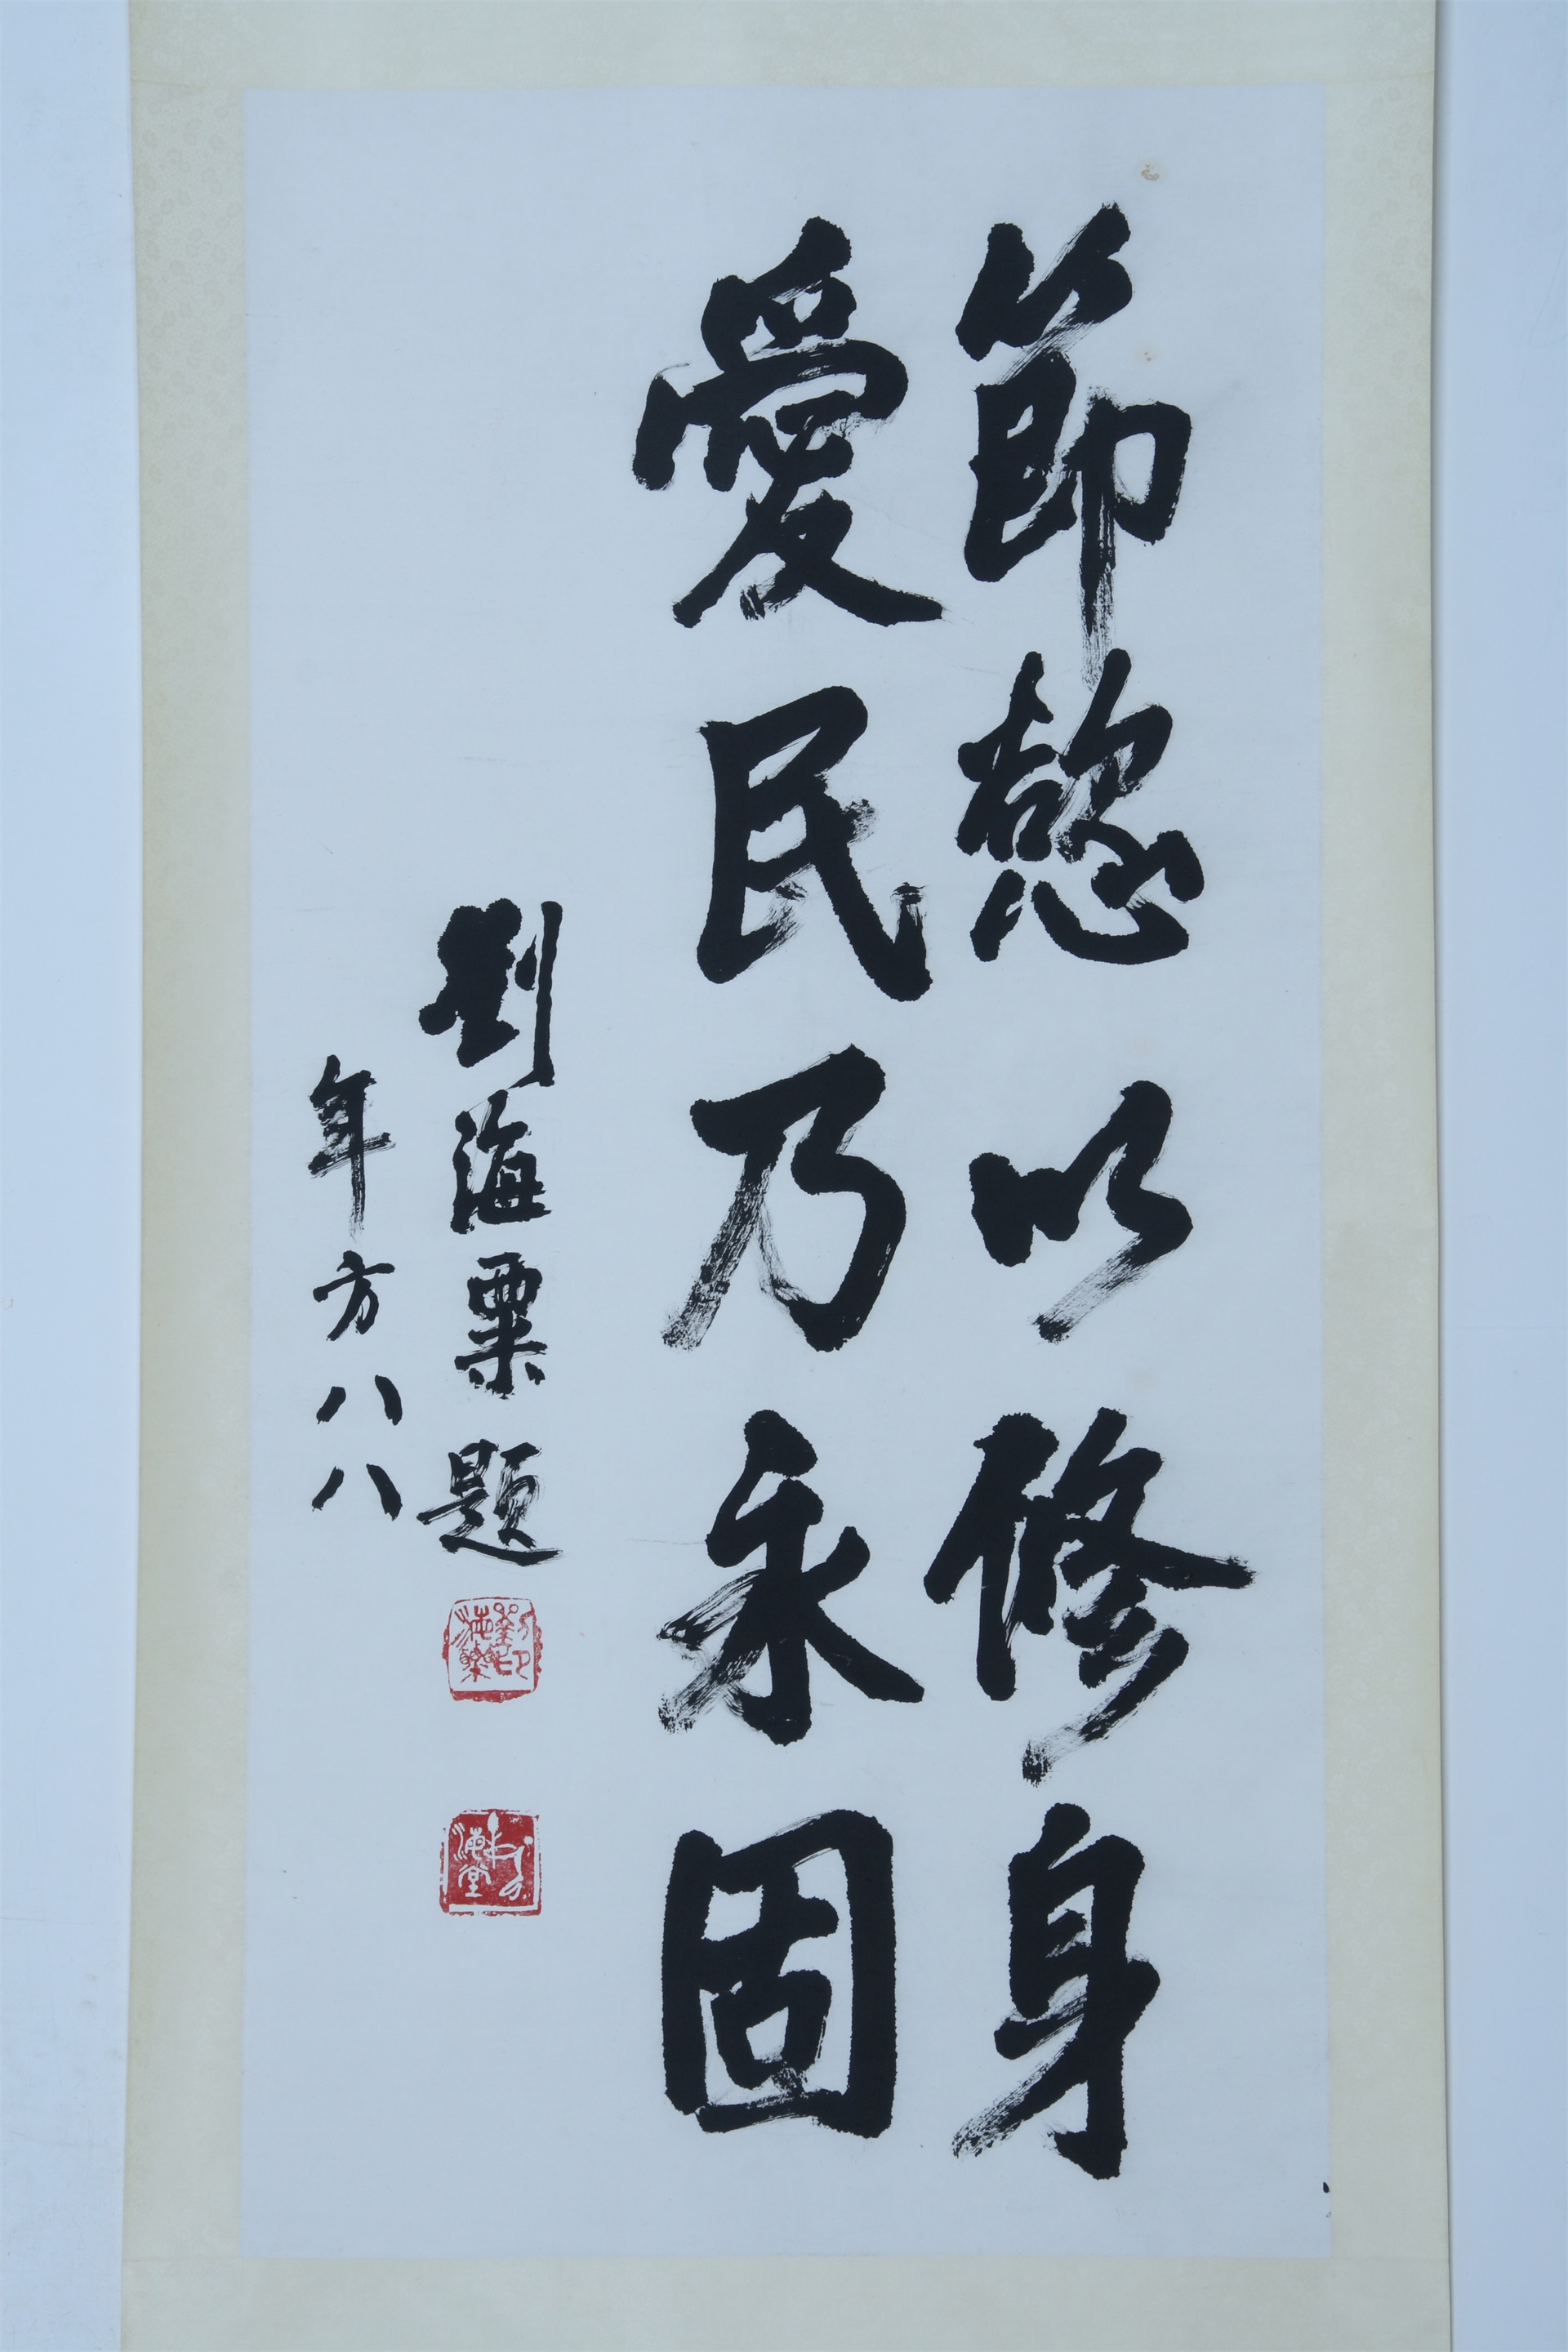 節慾以修身
愛民乃永固
劉海粟題
年方八八
劉海粟印